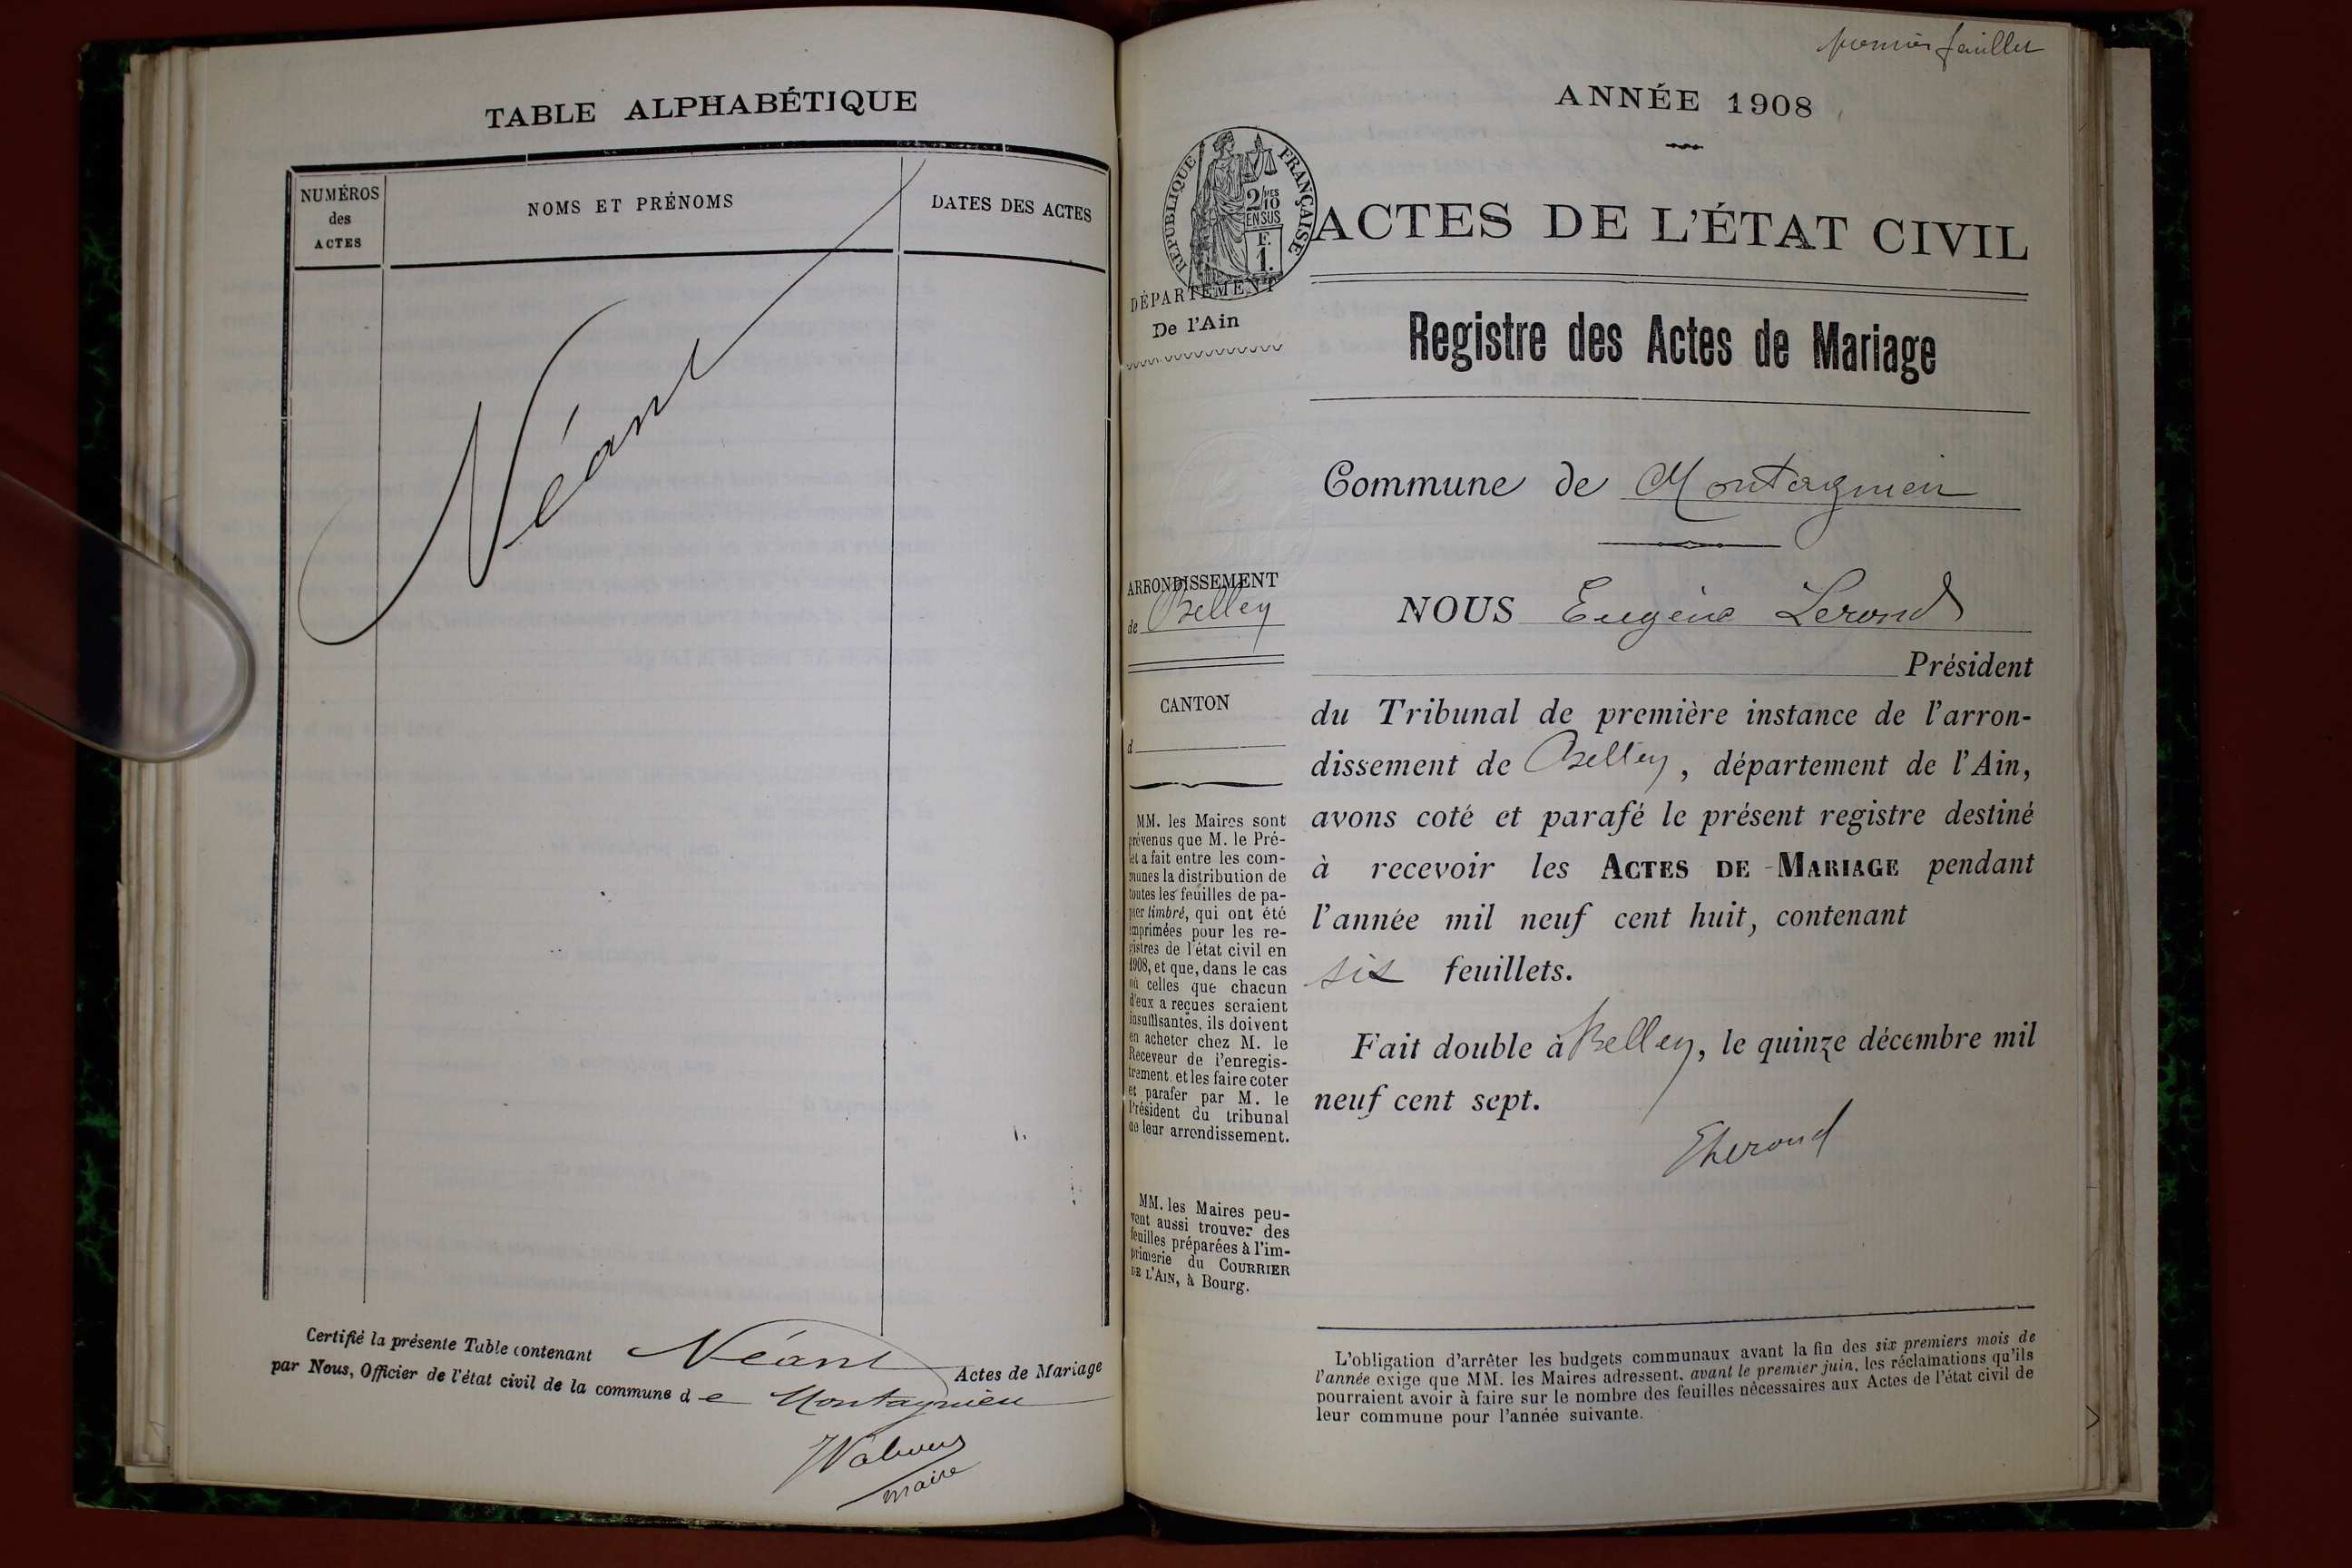 TABLE ALPHABÉTIQUE
NUMÉROS
des
ACTES
NOMS ET PRÉNOMS
DATES DES ACTES
Néant
Certifié la présente Table contenant Néant Actes de Mariage
par Nous, Officier de l'état civil de la commune d e Montagnieu
maire
premier feuillet
ANNÉE 1908
RÉPUBLIQUE FRANÇAISE
2/10 MES
EN SUS
F.
1.
ACTES DE L'ÉTAT CIVIL
DÉPARTEMENT
De l'Ain
Registre des Actes de Mariage
Commune de Montagnieu
ARRONDISSEMENT
de Belley
CANTON
d
MM. les Maires sont
prévenus que M. le Pré-
fet a fait entre les com-
munes la distribution de
toutes les feuilles de pa-
pier timbré, qui ont été
imprimées pour les re-
gistres de l'état civil en
1908, et que, dans le cas
où celles que chacun
d'eux a reçues seraient
insuffisantes, ils doivent
en acheter chez M. le
Receveur de l'enregis-
trement et les faire coter
et parafer par M. le
Président du tribunal
de leur arrondissement.
MM. les Maires peu-
vent aussi trouver des
feuilles préparées à l'im-
primerie du COURRIER
DE L'AIN, à Bourg.
NOUS Eugène Lerond
Président
du Tribunal de première instance de l'arron-
dissement de Belley, département de l'Ain,
avons coté et parafé le présent registre destiné
à recevoir les ACTES DE MARIAGE pendant
l'année mil neuf cent huit, contenant
six feuillets.
Fait double à Belley, le quinze décembre mil
neuf cent sept.
L'obligation d'arrêter les budgets communaux avant la fin des six premiers mois de
l'année exige que MM. les Maires adressent, avant le premier juin, les réclamations qu'ils
pourraient avoir à faire sur le nombre des feuilles nécessaires aux Actes de l'état civil de
leur commune pour l'année suivante.